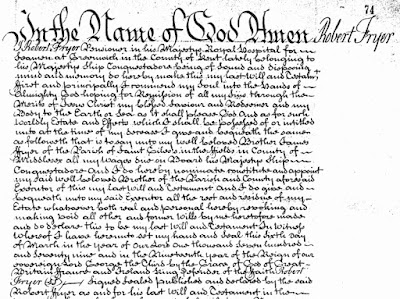 74
In the Name of God Amen Robert Fryer
I Robert Fryer Pensioner in his Majestys Royal Hospital for
Seamen at Greenwich in the County of Kent lately belonging to
his Majestys Ship Conquestadore being of sound and disposing
mind and memory do hereby make this my last Will and Testament
First and principally I commend my Soul into the Hands of
Almighty God hoping for Remission of all my Sins through the
Merits of Jesus Christ my blessed Saviour and Redeemer and my
Body to the Earth or Sea as it shall please God And as for such
worldly Estate and Effects which I shall be possessed of or intitled
unto at the time of my decease I give and bequeath the same
as followeth that is to say unto my well beloved Brother James
Fryer of the Parish of Saint Giles in the Fields in County of
Middlesex all my Wages due on Board his Majestys Ship
Conquestadore And I do hereby nominate constitute and appoint
my said well beloved Brother of the Parish and County aforesaid
Executor of this my last Will and Testament And I do give and
bequeath unto my said Executor all the rest and residue of my
Estate whatsoever both real and personal hereby revoking and
making void all other and former Wills by me heretofore made
and do declare this to be my last Will and Testament In Witness
Whereof I have hereunto set my hand and Seal this birth day
of March in the year of our Lord one thousand seven hundred
and seventy nine and in the Nineteenth year of the Reign of our
sovereign Lord George the Third by the Grace of God of Great
Britain France and Ireland King Defender of the Faith Robert
Fryer Signed Sealed published and declared by the said
Robert Fryer as and for his last Will and Testament in the